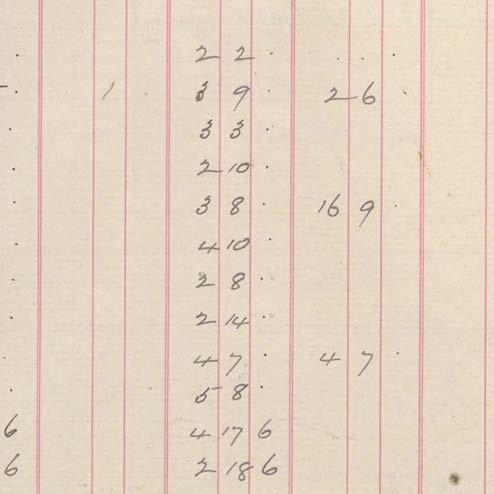 . 2 2 . . . .
. 1 . 3 9 . 2 6 .
. 3 3 .
. 2 10 .
. 3 8 . 16 9 .
. 4 10 .
. 2 8 .
. 2 14 .
. 4 7 . 4 7 .
. 5 8 .
6 4 17 6
6 2 18 6